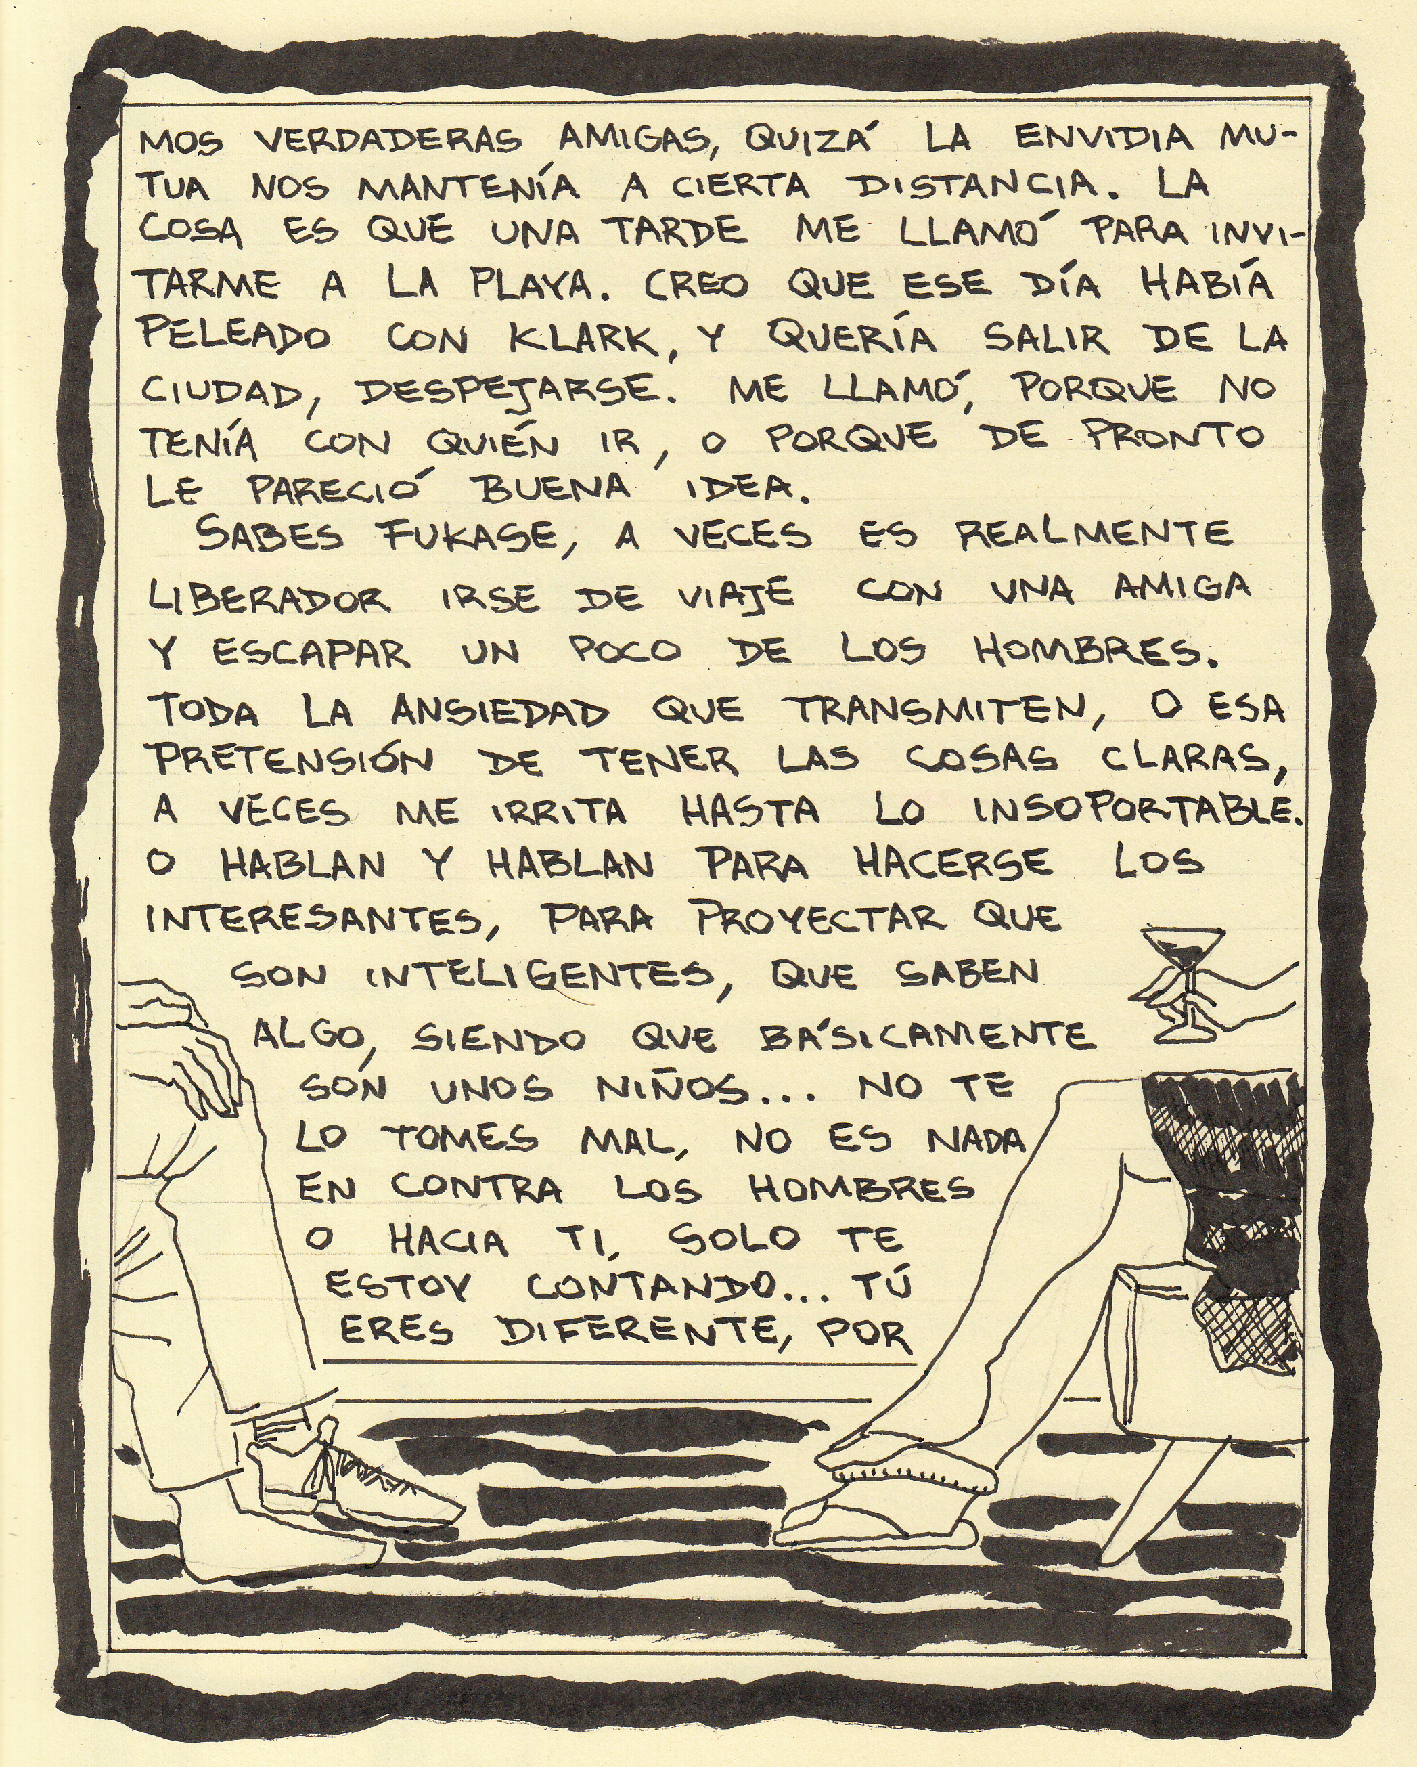 MOS VERDADERAS AMIGAS, QUIZÁ LA ENVIDIA MU-
TUA NOS MANTENÍA A CIERTA DISTANCIA. LA
COSA ES QUE UNA TARDE ME LLAMÓ PARA INVI-
TARME A LA PLAYA. CREO QUE ESE DÍA HABÍA
PELEADO CON KLARK, Y QUERÍA SALIR DE LA
CIUDAD, DESPEJARSE. ME LLAMÓ, PORQUE NO
TENÍA CON QUIÉN IR, O PORQUE DE PRONTO
LE PARECIÓ BUENA IDEA.
SABES FUKASE, A VECES ES REALMENTE
LIBERADOR IRSE DE VIAJE CON UNA AMIGA
Y ESCAPAR UN POCO DE LOS HOMBRES.
TODA LA ANSIEDAD QUE TRANSMITEN, O ESA
PRETENSIÓN DE TENER LAS COSAS CLARAS,
A VECES ME IRRITA HASTA LO INSOPORTABLE.
O HABLAN Y HABLAN PARA HACERSE LOS
INTERESANTES, PARA PROYECTAR QUE
SON INTELIGENTES, QUE SABEN
ALGO, SIENDO QUE BÁSICAMENTE
SON UNOS NIÑOS... NO TE
LO TOMES MAL, NO ES NADA
EN CONTRA LOS HOMBRES
O HACIA TI, SOLO TE
ESTOY CONTANDO... TÚ
ERES DIFERENTE, POR